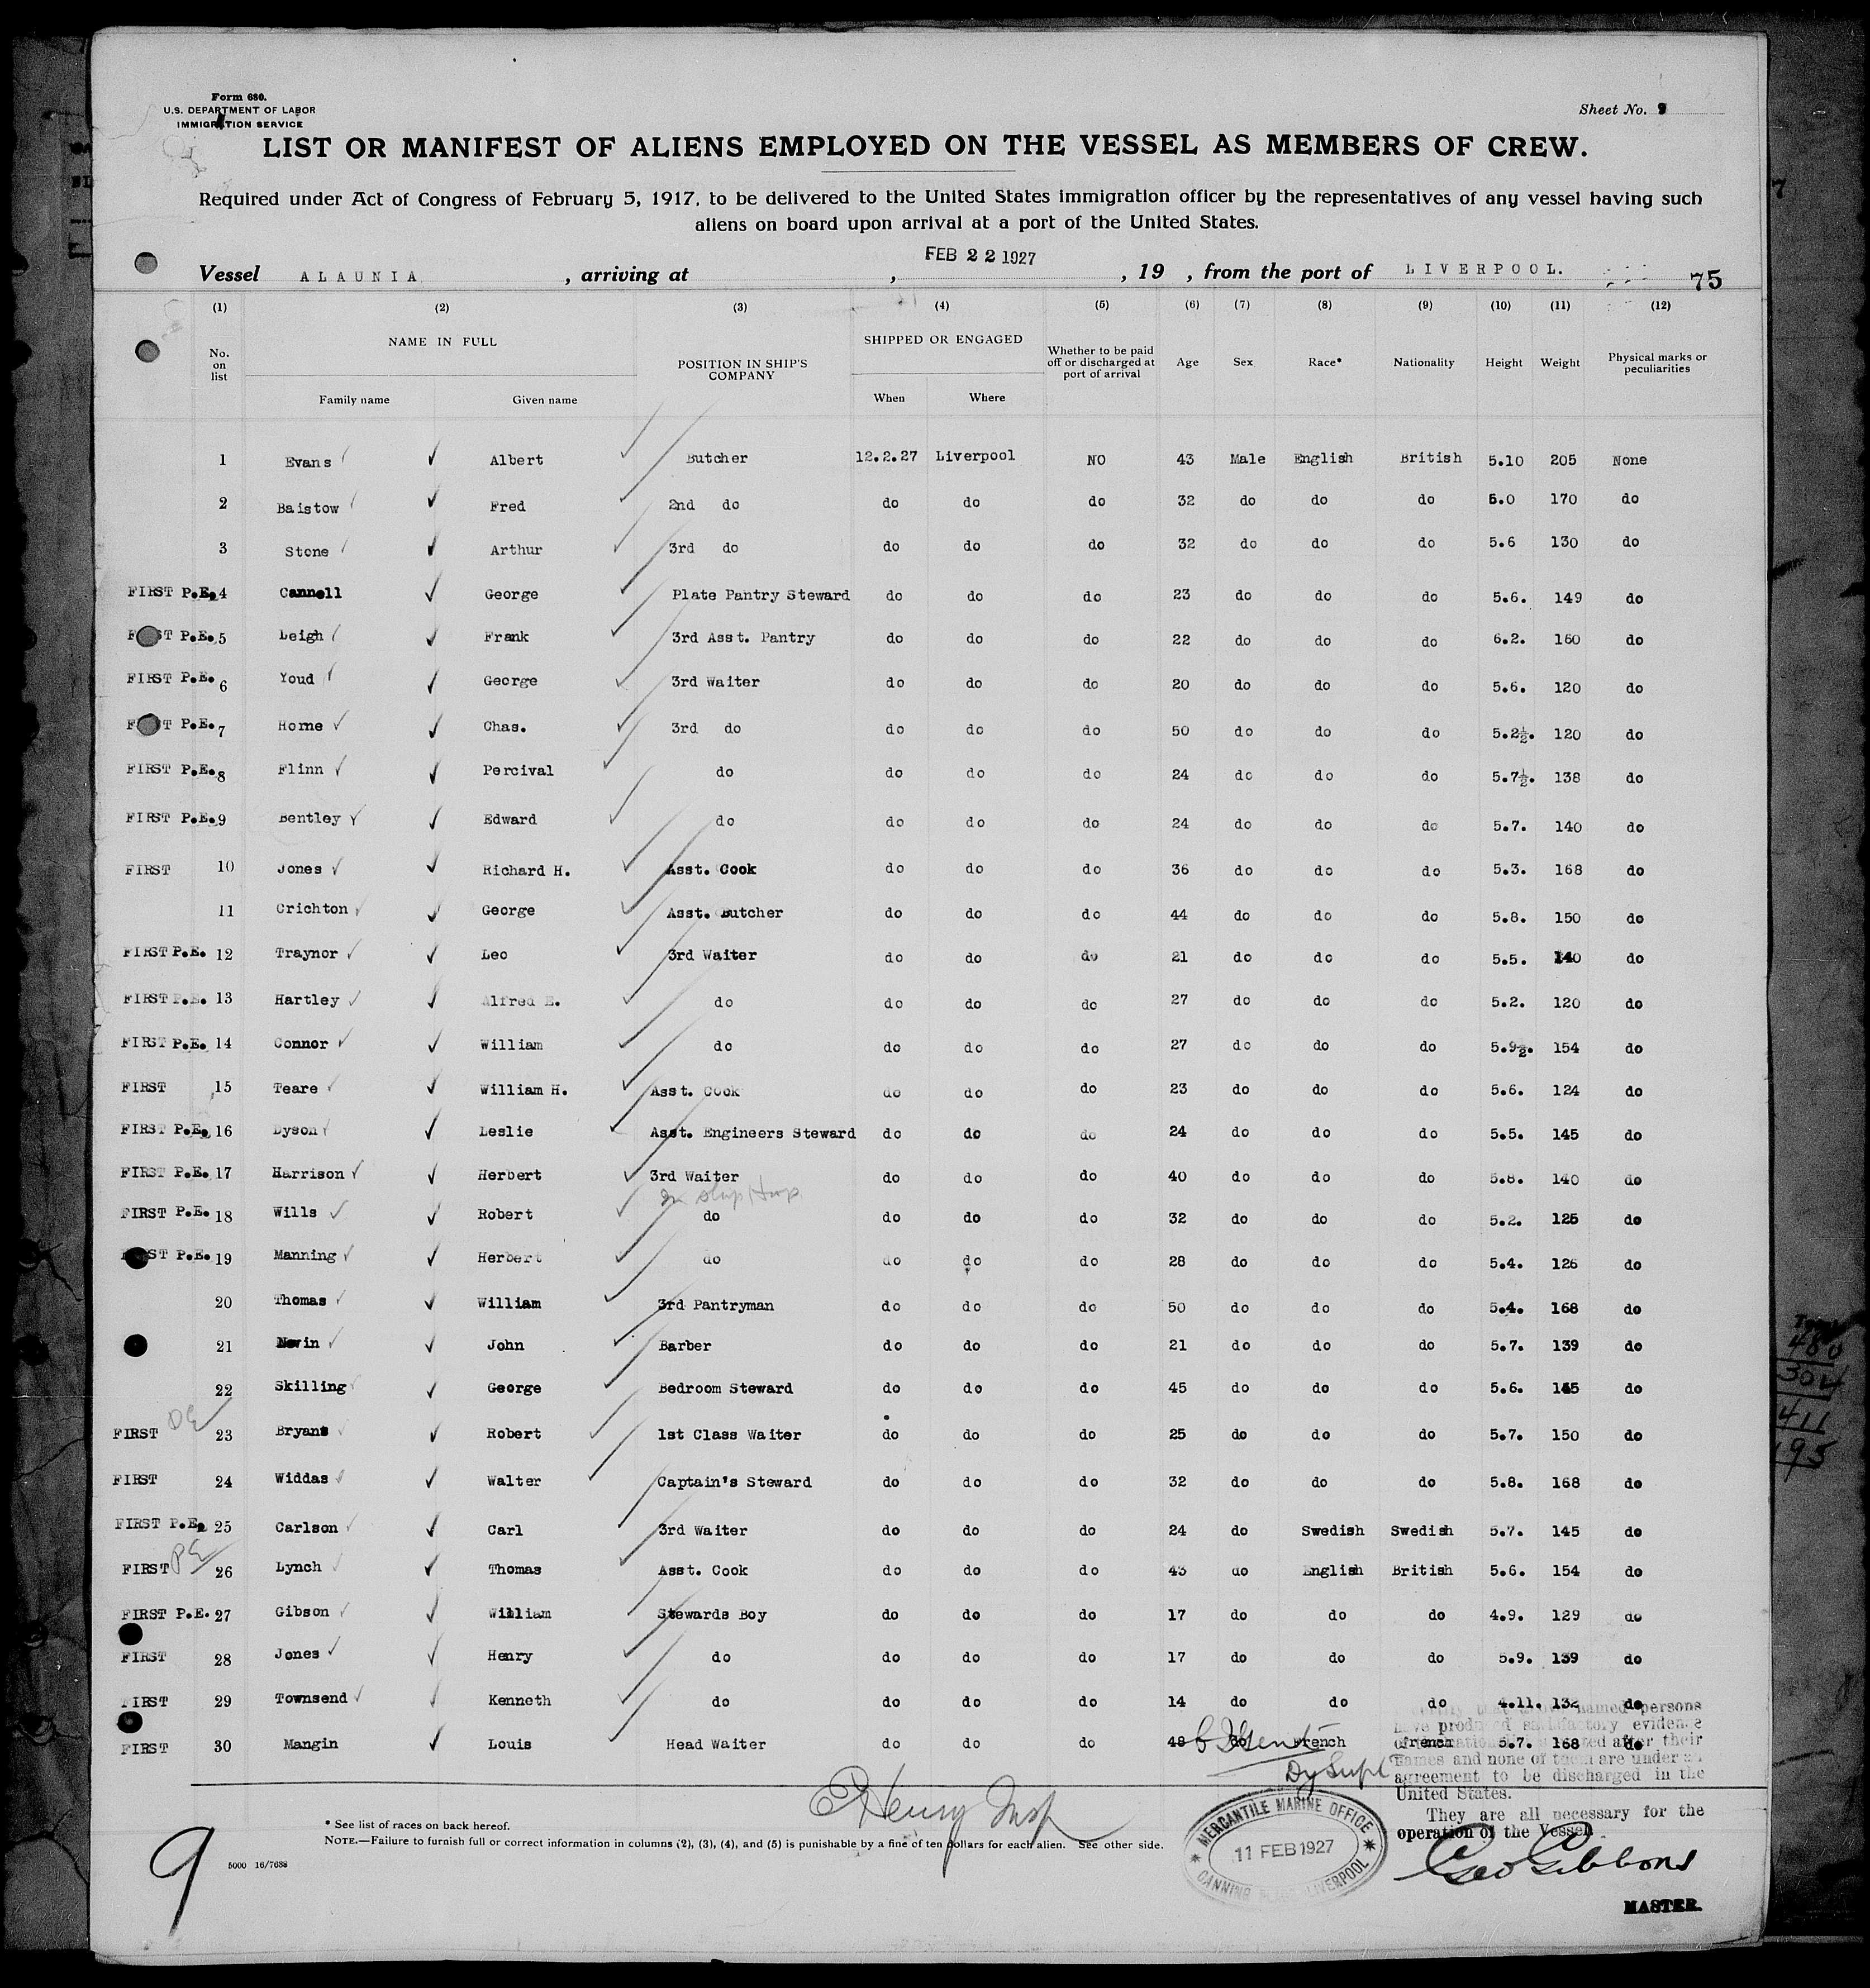 Form 680.
U.S. DEPARTMENT OF LABOR
IMMIGRATION SERVICE
Sheet No. 9
LIST OR MANIFEST OF ALIENS EMPLOYED ON THE VESSEL AS MEMBERS OF CREW.
Required under Act of Congress of February 5, 1917, to be delivered to the United States immigration officer by the representatives of any vessel having such
aliens on board upon arrival at a port of the United States.
Vessel ALAUNIA, arriving at , FEB 22 1927, 19 , from the port of LIVERPOOL. 75
(1) (2) (3) (4) (5) (6) (7) (8) (9) (10) (11) (12)
No. on list NAME IN FULL Family name Given name POSITION IN SHIP'S COMPANY SHIPPED OR ENGAGED When Where Whether to be paid off or discharged at port of arrival Age Sex Race* Nationality Height Weight Physical marks or peculiarities
1 Evans Albert Butcher 12.2.27 Liverpool NO 43 Male English British 5.10 205 None
2 Baistow Fred 2nd do do do do 32 do do do 5.0 170 do
3 Stone Arthur 3rd do do do do 32 do do do 5.6 130 do
FIRST P.E. 4 Cannell George Plate Pantry Steward do do do 23 do do do 5.6. 149 do
FIRST P.E. 5 Leigh Frank 3rd Asst. Pantry do do do 22 do do do 6.2. 160 do
FIRST P.E. 6 Youd George 3rd Waiter do do do 20 do do do 5.6. 120 do
FIRST P.E. 7 Horne Chas. 3rd do do do do 50 do do do 5.2½. 120 do
FIRST P.E. 8 Flinn Percival do do do do 24 do do do 5.7½. 138 do
FIRST P.E. 9 Bentley Edward do do do do 24 do do do 5.7. 140 do
FIRST 10 Jones Richard H. Asst. Cook do do do 36 do do do 5.3. 168 do
11 Crichton George Asst. Butcher do do do 44 do do do 5.8. 150 do
FIRST P.E. 12 Traynor Leo 3rd Waiter do do do 21 do do do 5.5. 140 do
FIRST P.E. 13 Hartley Alfred E. do do do do 27 do do do 5.2. 120 do
FIRST P.E. 14 Connor William do do do do 27 do do do 5.9½. 154 do
FIRST 15 Teare William H. Asst. Cook do do do 23 do do do 5.6. 124 do
FIRST P.E. 16 Dyson Leslie Asst. Engineers Steward do do do 24 do do do 5.5. 145 do
FIRST P.E. 17 Harrison Herbert 3rd Waiter do do do 40 do do do 5.8. 140 do
FIRST P.E. 18 Wills Robert do do do do 32 do do do 5.2. 125 do
FIRST P.E. 19 Manning Herbert do do do do 28 do do do 5.4. 126 do
20 Thomas William 3rd Pantryman do do do 50 do do do 5.4. 168 do
21 Nevin John Barber do do do 21 do do do 5.7. 139 do
22 Skilling George Bedroom Steward do do do 45 do do do 5.6. 145 do
FIRST 23 Bryans Robert 1st Class Waiter do do do 25 do do do 5.7. 150 do
FIRST 24 Widdas Walter Captain's Steward do do do 32 do do do 5.8. 168 do
FIRST P.E. 25 Carlson Carl 3rd Waiter do do do 24 do Swedish Swedish 5.7. 145 do
FIRST PE 26 Lynch Thomas Asst. Cook do do do 43 do English British 5.6. 154 do
FIRST P.E. 27 Gibson William Stewards Boy do do do 17 do do do 4.9. 129 do
FIRST 28 Jones Henry do do do do 17 do do do 5.9. 139 do
FIRST 29 Townsend Kenneth do do do do 14 do do do 4.11. 132 do
FIRST 30 Mangin Louis Head Waiter do do do 48 do French French 5.7. 168 do
named persons
have produced satisfactory evidence
after their
names and none of them are under
agreement to be discharged in the
United States.
They are all necessary for the
operation of the Vessel.
Dy Supt
Henry Insp
Geo Gibbons
MASTER.
MERCANTILE MARINE OFFICE
11 FEB 1927
CANNING PLACE LIVERPOOL
* See list of races on back hereof.
NOTE.—Failure to furnish full or correct information in columns (2), (3), (4), and (5) is punishable by a fine of ten dollars for each alien. See other side.
5000 16/7638
9
480
304
411
195